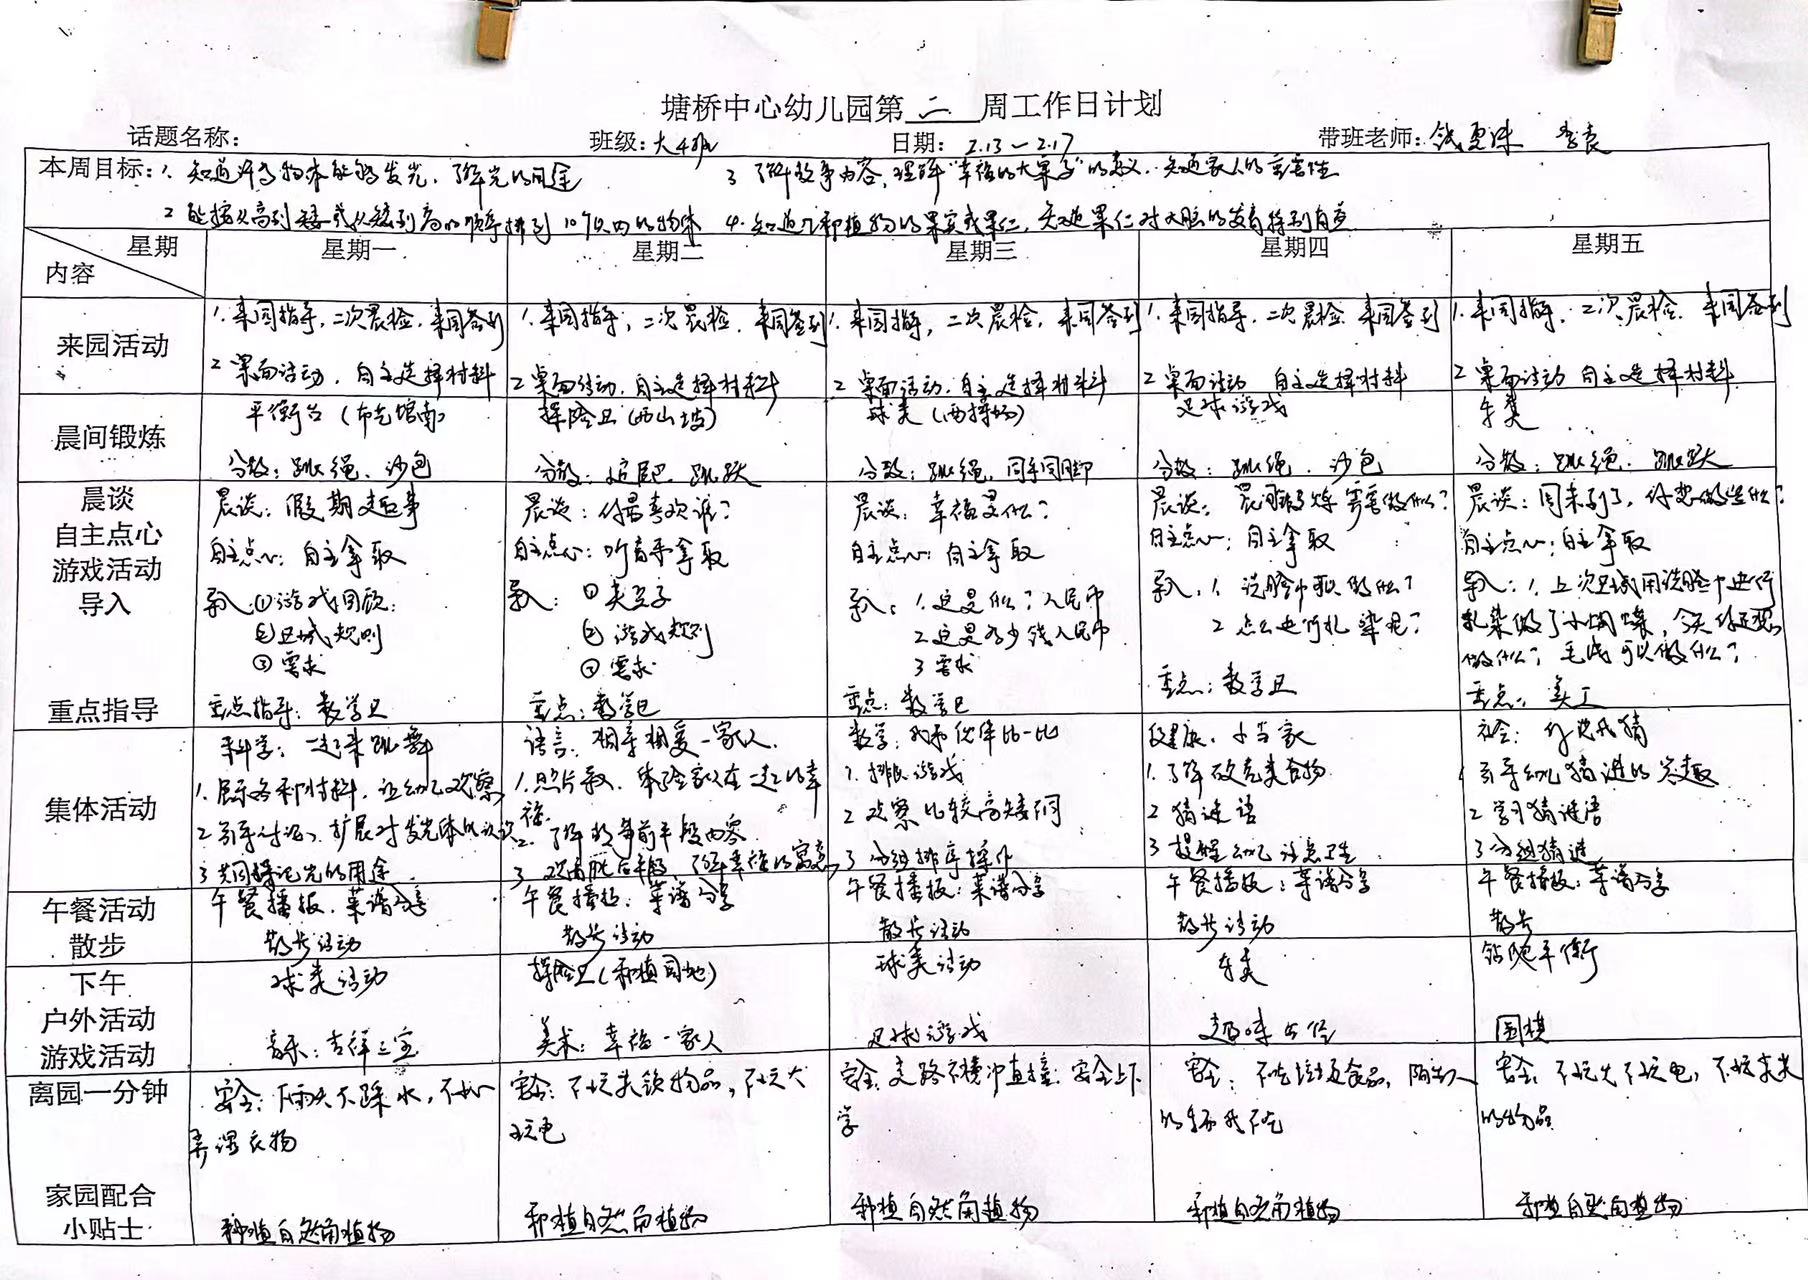 塘桥中心幼儿园第 二 周工作日计划
话题名称： 班级：大4班 日期：2.13—2.17 带班老师：钱 李
本周目标：1. 知道许多物体能够发光，了解光的用途 3 了解故事内容，理解“幸福的大果子”的意义，知道家人的重要性
2 能按从高到矮或从矮到高的顺序排列10个以内的物体 4. 知道几种植物的果实或果仁，知道果仁对大脑的发育特别有益
星期 星期一 星期二 星期三 星期四 星期五
内容
来园活动
1. 来园指导，二次晨检，来园签到
2 桌面活动，自主选择材料
1. 来园指导，二次晨检，来园签到
2 桌面活动，自主选择材料
1. 来园指导，二次晨检，来园签到
2 桌面活动，自主选择材料
1. 来园指导，二次晨检，来园签到
2 桌面活动 自主选择材料
1. 来园指导，二次晨检，来园签到
2 桌面活动 自主选择材料
晨间锻炼
平衡台（布克馆南）
分散：跳绳、沙包
探险区（西山坡）
分散：揪尾巴、跳跃
球类（西操场）
分散：跳绳，同手同脚
足球游戏
分散：跳绳、沙包
车类
分散：跳绳、跳跃
晨谈
自主点心
游戏活动
导入
重点指导
晨谈：假期趣事
自主点心：自主拿取
导入：①游戏回顾
②区域规则
③需求
重点指导：数学区
晨谈：你最喜欢谁？
自主点心：听音乐拿取
导入：①夹豆子
②游戏规则
③需求
重点：数学区
晨谈：幸福是什么？
自主点心：自主拿取
导入：1.这是什么？人民币
2 这是多少钱人民币
3 需求
重点：数学区
晨谈：晨间锻炼需要做什么？
自主点心：自主拿取
导入：1. 洗脸巾可以做什么？
2 怎么进行扎染呢？
重点：数学区
晨谈：周末到了，你想做些什么？
自主点心：自主拿取
导入：1. 上次区域用洗脸巾进行
扎染做了小蝴蝶，今天你还想
做什么？毛线可以做什么？
重点：美工
集体活动
科学：一起来跳舞
1. 展示各种材料，让幼儿观察
2 引导讨论，扩展对发光体的认识
3 共同探记光的用途
语言：相亲相爱一家人
1. 照片导入，体验家人在一起的幸
福
2. 了解故事前半段内容
3 欣赏后半段 了解幸福的寓意
数学：我和伙伴比一比
1. 排队游戏
2 观察比较高矮不同
3 分组排序操作
健康：小当家
1. 了解破壳类食物
2 猜谜语
3 提醒幼儿注意卫生
社会：你说我猜
1 引导幼儿猜谜的兴趣
2 学习猜谜语
3 分组猜谜
午餐活动
散步
午餐播报：菜谱分享
散步活动
午餐播报：菜谱分享
散步活动
午餐播报：菜谱分享
散步活动
午餐播报：菜谱分享
散步活动
午餐播报：菜谱分享
散步
下午
户外活动
游戏活动
球类活动
音乐：吉祥三宝
探险区（种植园地）
美术：幸福一家人
球类活动
足球游戏
车类
趣味田径
钻爬平衡
围棋
离园一分钟
安全：下雨天不踩水，不
弄湿衣物
安全：不玩尖锐物品，不玩火
玩电
安全：走路不横冲直撞，安全上下
学
安全：不吃垃圾食品，陌生人
的东西我不吃
安全：不玩火不玩电，不玩尖尖
的物品
家园配合
小贴士
种植自然角植物
种植自然角植物
种植自然角植物
种植自然角植物
种植自然角植物